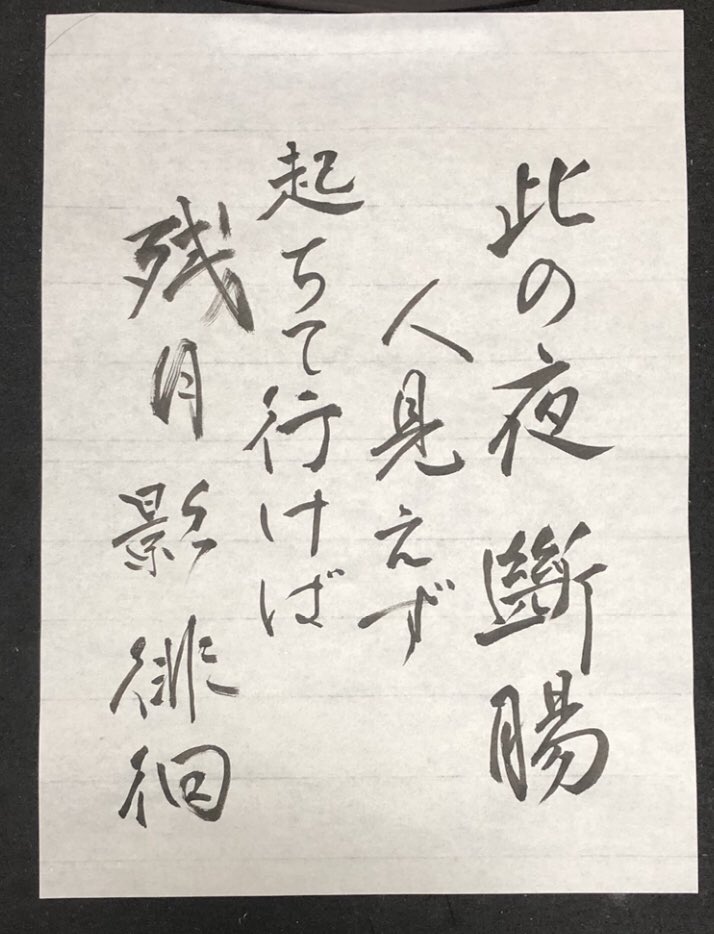 此の夜 斷腸
人見えず
起ちて行けば
残月 影 徘徊